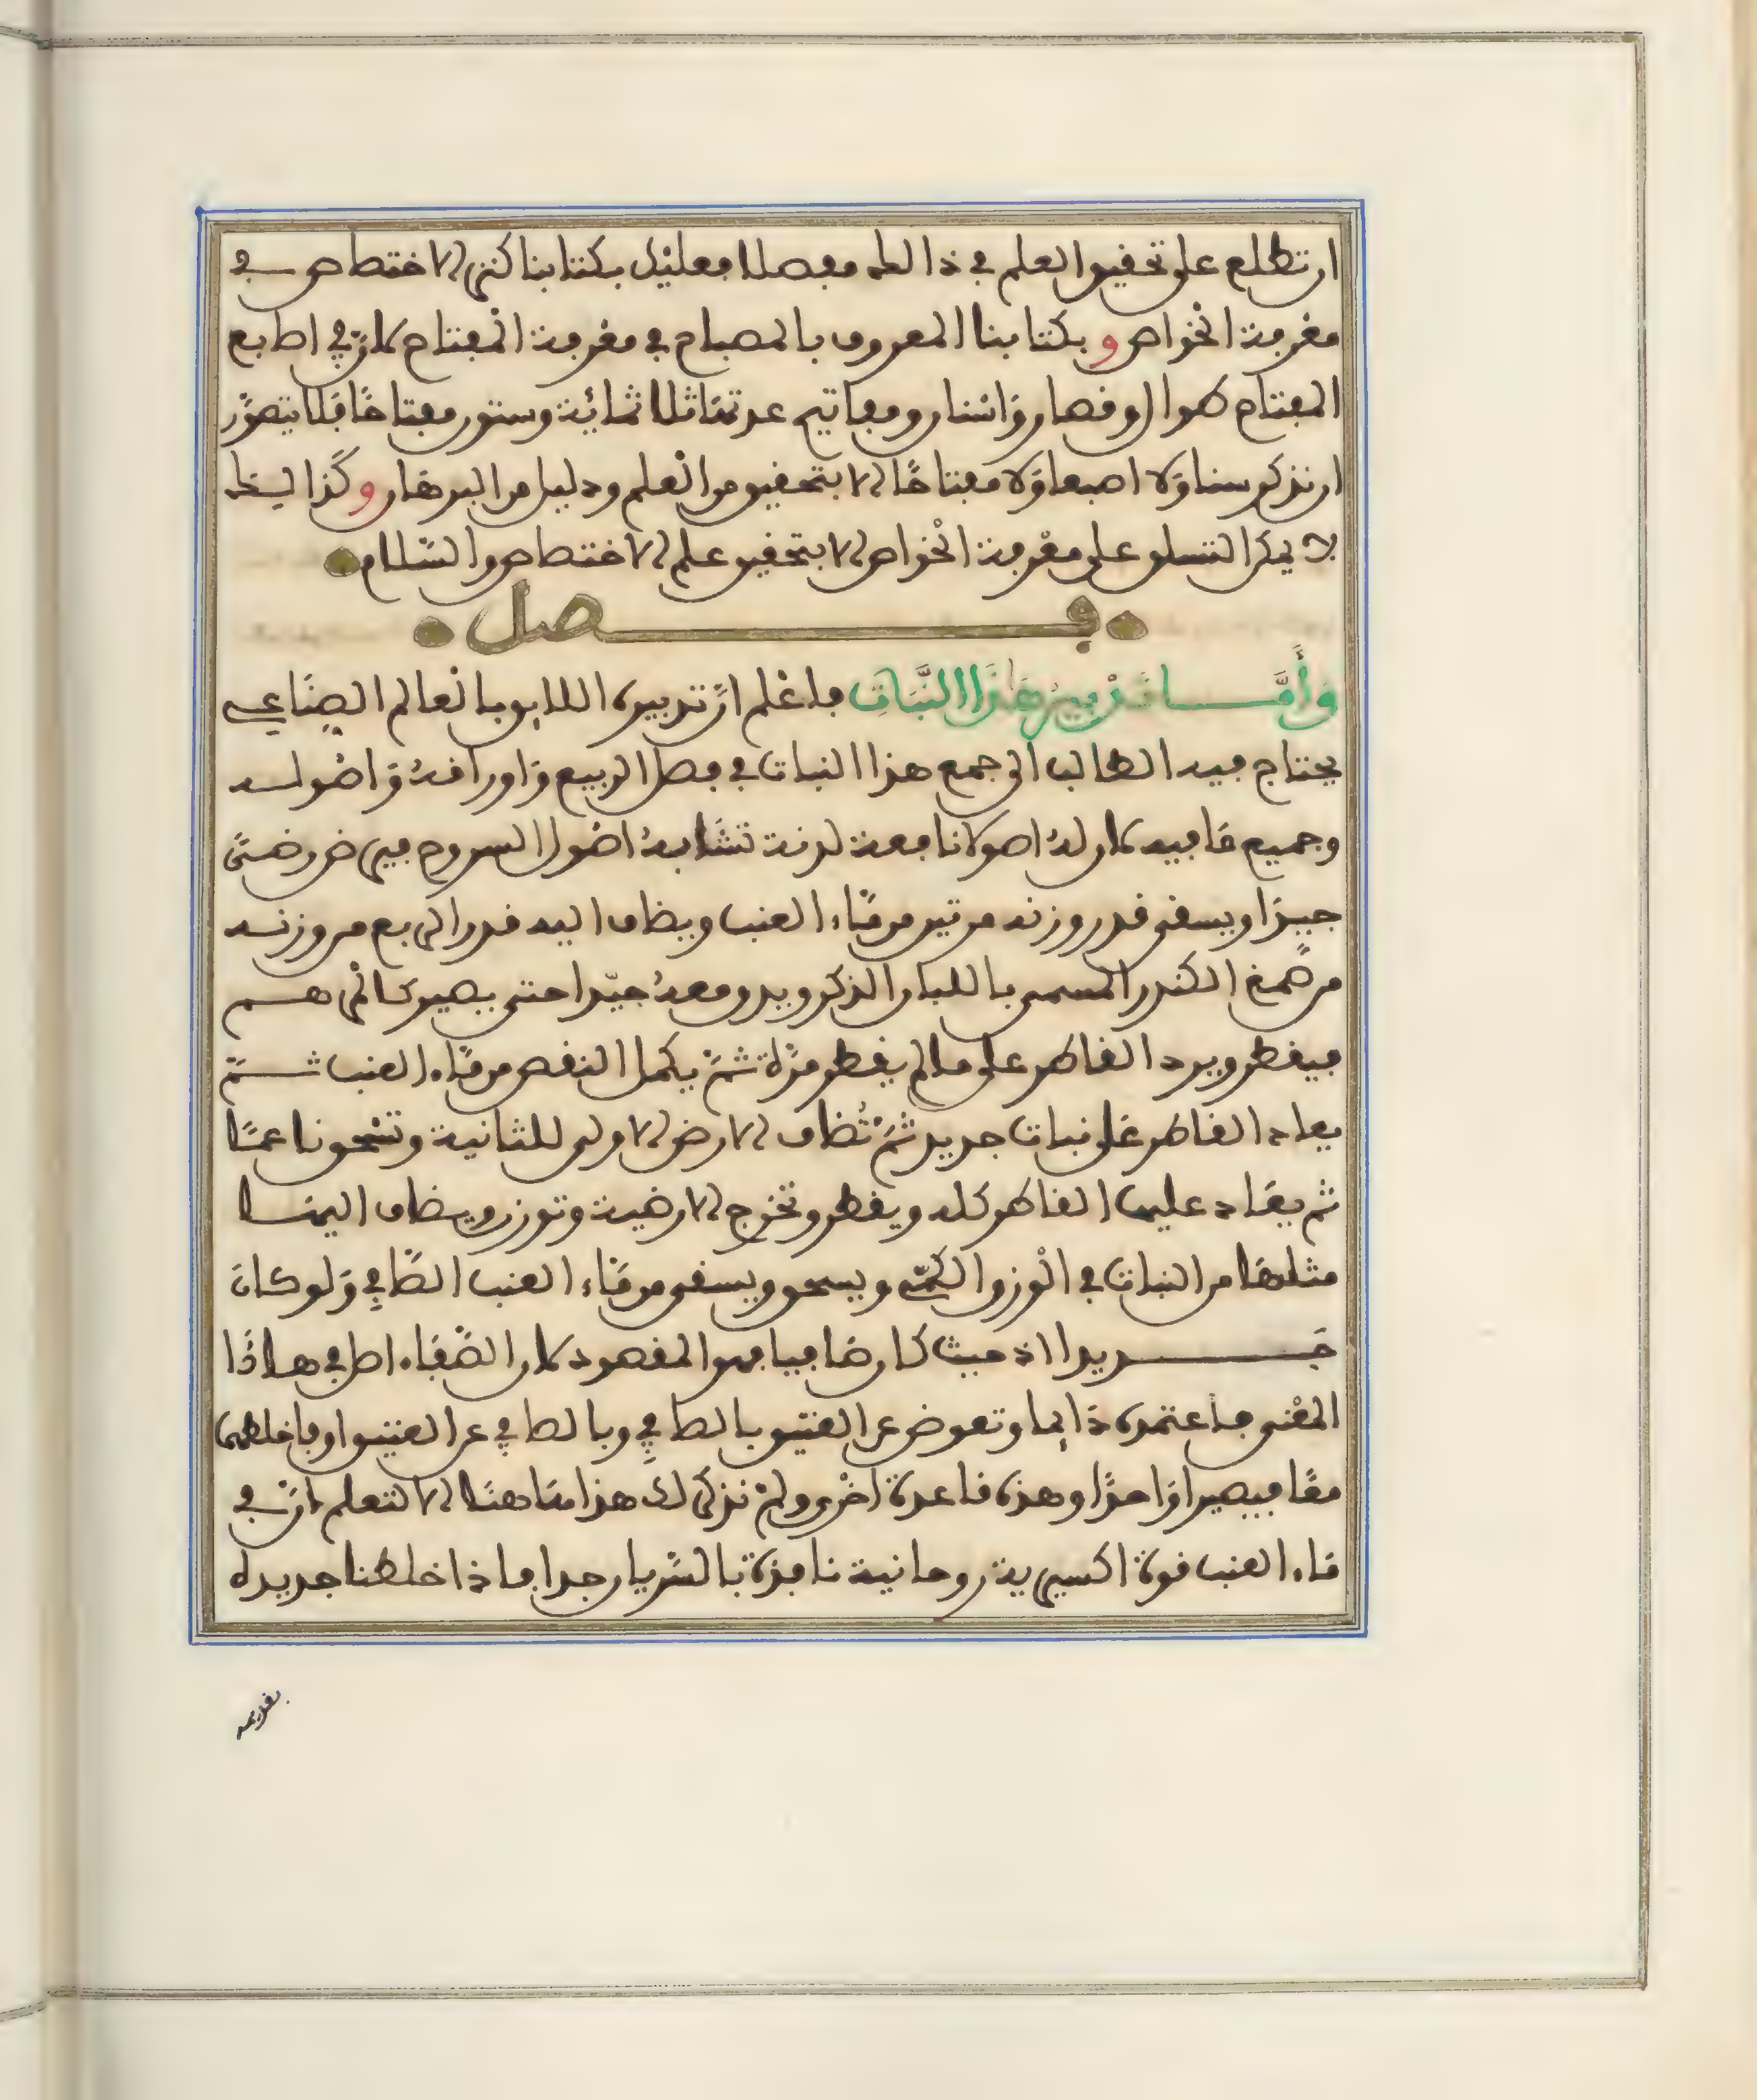 ان تطلع على تحقيق العلم في ذا لطه مفصلا فعليك بكتابنا كنز الاختصاص في
معرفة الخواص و بكتابنا المعروف بالمصباح في معرفة المفتاح لان في اطابع
المفتاح هوا لوقها روَاسنان ومفاتيح عدتهَا ثلاثمائة وستون مفتاحًا فَلا يتصوَّر
ان نذكر سنا وَلا اصبعا وَلا مفتاحًا الا بتحقيق من العلم ودليل من البرهَان و كَذا لـك
لا يمكن التسلق على معْرفة الخْواص الا بتحقيق علم الاختصاص والسّلام
فـصل
وَأَمَّـا تَدْبِيرُ هَاذَا النَّبَاتِ فاعْلم انّ تدبيره اللايق بالعالم الصِنَاعي
يحتاج فيه الطالب الى جمع هذا النبات في فصل الربيع وَاوراقهُ وَاصُولـه
وجميع مَا فيه لان لهُ اصولا نافعة لدنة تشَابهُ اصُول السروح فيرضّ رضـًّى
جيدَا ويسقى قدر وزنه مرتين من مَاء العنب ويضاف اليه قدر الربع من وزنـه
من صَمغ الكندر المسمى باللبان الذكر ويدق معهُ جيّدا حتى يصير كالمرهـم
فيقطر ويرد القاطر على ما لم يقطر مرّة ثمّ يكمل النقص من مَاء العنب ثـمّ
يعاد القاطر عَلى نبات جديد ثمّ تُضاف الارض الاولى للثانية وتسْحق ناعمـًا
ثم يعَاد عليها القاطر كله ويقطر وتخرج الارضية وتوزن ويضاف اليهـا
مثلهَا من النبات في الْوزن والكمّية ويسحق ويسقى من مَاء العنب الصَّافِي وَلو كان
جَـديدا اذ حيث كان صَافيا فهو المقصود لان الصّفَاء اصل في هـاذَا
المعْنى فاعتمده دَايما وتعوض عن العتيق بالصافِي وبالصافِي عن العتيق او فاخلطهما
معًا فيصيرا وَاحدًا وهذه قاعدة اخْرى ولمْ نذكر لك هذا هَاهنَا الا لتعلم انّ في
مَاء العنب قوة اكسيرية روحانية نافذة بالسّريان جدا فاذا خلطنا جديده
بقديمه